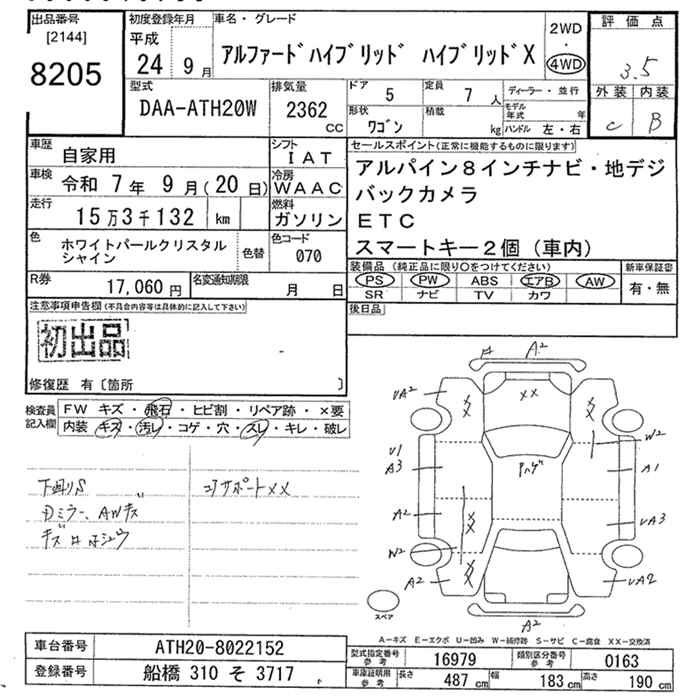 出品番号
[2144]
8205
初度登録年月
平成
24 9月
車名・グレード
アルファードハイブリッド ハイブリッドX
2WD
・
4WD
評価点
3.5
外装 内装
C B
型式
DAA-ATH20W
排気量
2362
CC
ドア
5
定員
7 人
形状
ワゴン
積載
kg
ディーラー・並行
モデル年式 年
ハンドル 左・右
車歴
自家用
シフト
IAT
車検
令和 7年 9月(20日)
冷房
WAAC
走行
15万3千132 km
燃料
ガソリン
色
ホワイトパールクリスタル
シャイン
色替
色コード
070
R券
17,060円
名変通知期限
月 日
セールスポイント(正常に機能するものに限ります)
アルパイン8インチナビ・地デジ
バックカメラ
ETC
スマートキー2個(車内)
装備品(純正品に限り○をつけてください)
PS PW ABS エアB AW
SR ナビ TV カワ
新車保証書
有・無
後日品
注意事項申告欄(不具合内容等は具体的に記入して下さい)
初出品
修復歴 有〔箇所 〕
検査員
記入欄
FW キズ・飛石・ヒビ割・リペア跡・×要
内装・キズ・汚レ・コゲ・穴・スレ・キレ・破レ
下回りS
Dミラー、AWキズ
コアサポートXX
A2
UA2
XX
W2
U1
A3
A1
A2
UA3
W2
A2
UA2
A2
スペア
A-キズ E-エクボ U-凹み W-補修跡 S-サビ C-腐食 XX-交換済
車台番号
ATH20-8022152
登録番号
船橋 310 そ 3717
型式指定番号
参考
16979
類別区分番号
参考
0163
車庫証明用
参考
長さ 487 cm 幅 183 cm 高さ 190 cm